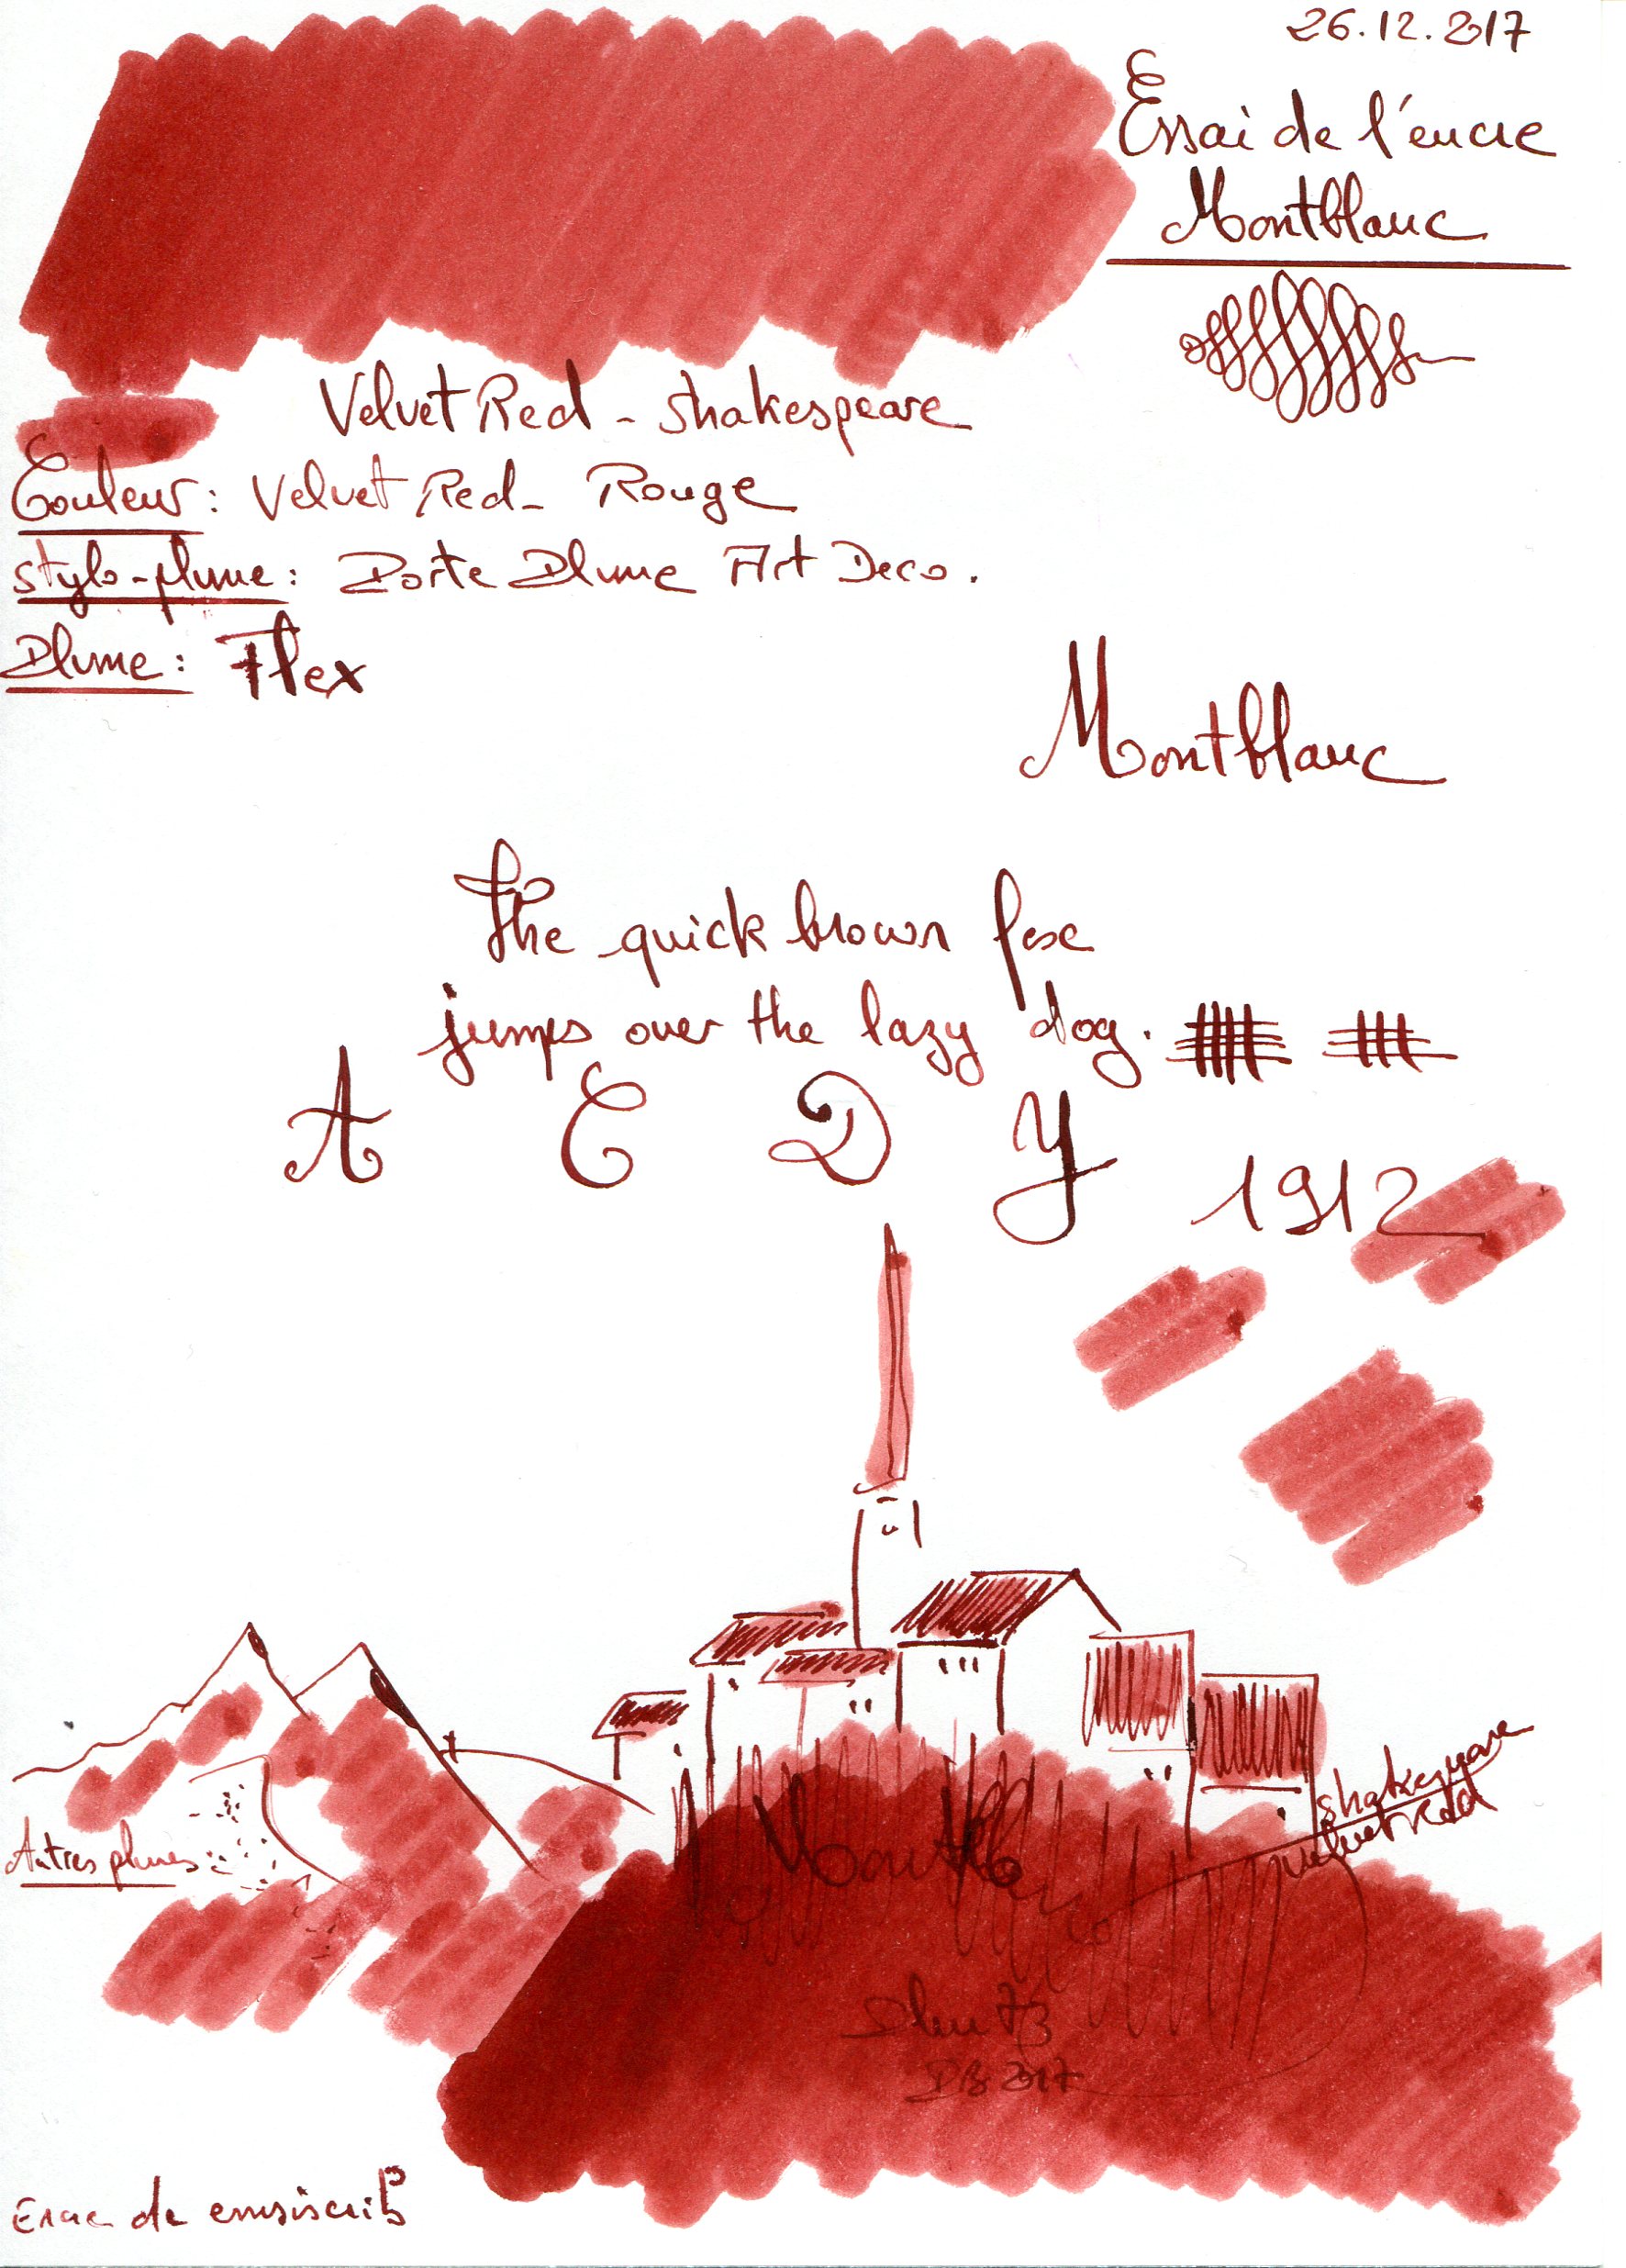 26.12.2017
Essai de l'encre
Montblanc
Velvet Red - Shakespeare
Couleur : Velvet Red - Rouge
Stylo-plume : Porte Plume Art Deco.
Plume : Flex
Montblanc
The quick brown fox
jumps over the lazy dog.
A C D Y 1912
Shakespeare
Velvet Red
Autres plumes :
2017
de